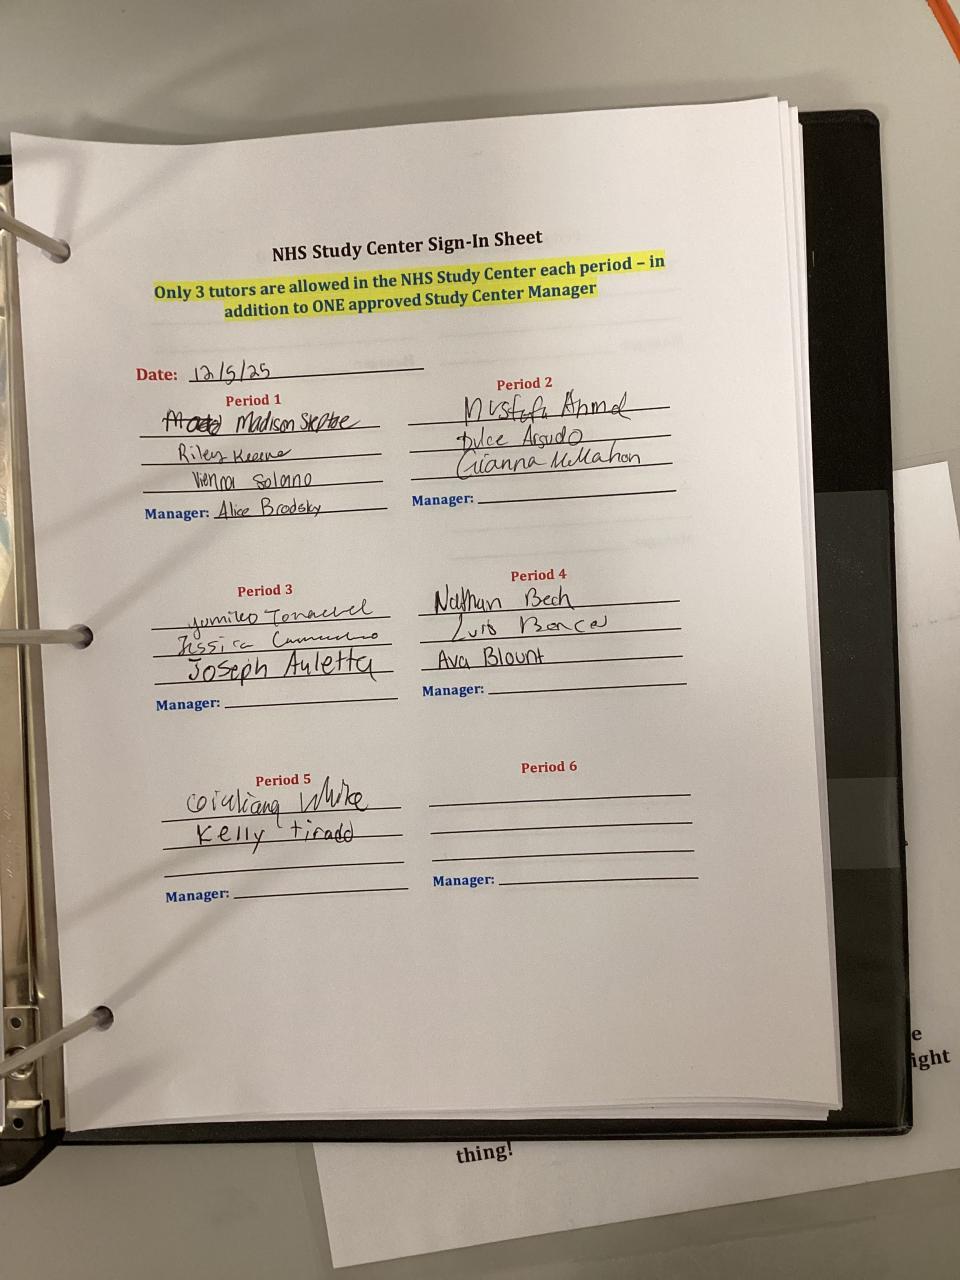 NHS Study Center Sign-In Sheet
Only 3 tutors are allowed in the NHS Study Center each period – in
addition to ONE approved Study Center Manager
Date: 12/5/25
Period 1
Madison
Riley Keene
Vienna Solano
Manager: Alice Brodsky
Period 2
Mustafa Ahmed
Dulce Argudo
Gianna McMahon
Manager:
Period 3
Yumiko
Jessica
Joseph Auletta
Manager:
Period 4
Nathan Bech
Luis
Ava Blount
Manager:
Period 5
White
Kelly Tirado
Manager:
Period 6
Manager:
e
ight
thing!